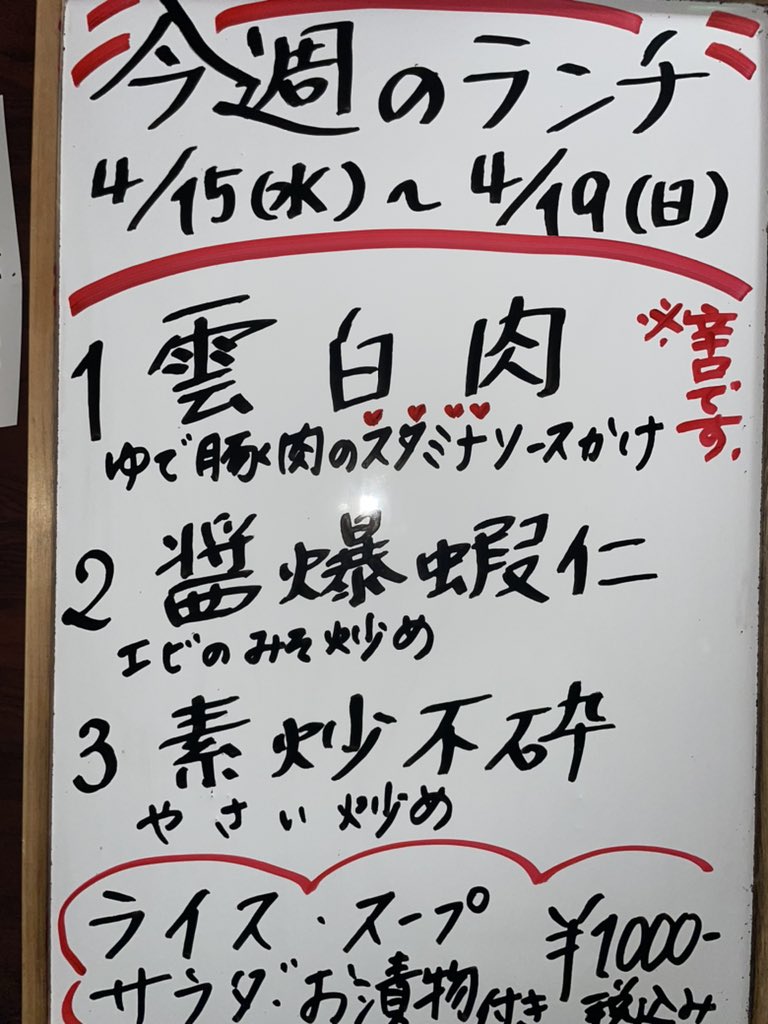 今週のランチ
4/15(水)～4/19(日)
1 雲白肉
※辛口です。
ゆで豚肉のスタミナソースかけ
2 醤爆蝦仁
エビのみそ炒め
3 素炒不砕
やさい炒め
ライス・スープ
サラダ・お漬物付き
¥1000-
税込み